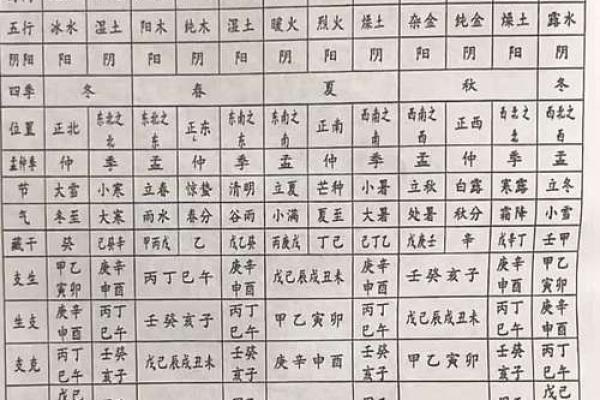 五行 冰水 湿土 阳木 纯木 湿土 暖火 烈火 燥土 杂金 纯金 燥土 露水
阴阳 阳 阴 阳 阴 阳 阴 阳 阴 阳 阴 阳 阴
四季 冬 春 夏 秋 冬
位置 正北 东北之北 东北之东 正东 东南之东 东南之南 正南 西南之南 西南之西 正西 西北之西 西北之北
孟仲季 仲 季 孟 仲 季 孟 仲 季 孟 仲 季 孟
节 大雪 小寒 立春 惊蛰 清明 立夏 芒种 小暑 立秋 白露 寒露 立冬
气 冬至 大寒 雨水 春分 谷雨 小满 夏至 大暑 处暑 秋分 霜降 小雪
藏干 癸 己癸辛 甲丙戊 乙 戊乙癸 丙庚戊 丁己 己丁乙 戊庚壬 辛 戊辛丁 壬甲
支生 甲乙寅卯 庚辛申酉 丙丁巳午 庚辛申酉 戊己辰戌丑未 庚辛申酉 壬癸亥子 庚辛申酉 甲乙寅卯
生支 庚辛申酉 丙丁巳午 壬癸亥子 丙丁巳午 甲乙寅卯 丙丁巳午 戊己辰戌丑未 丙丁巳午 庚辛申酉
支克 丙丁巳午 壬癸亥子 戊己辰戌丑未 壬癸亥子 庚辛申酉 壬癸亥子 甲乙寅卯 壬癸亥子 丙丁巳午
戊己 戊己